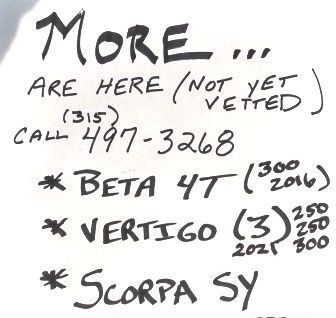 MORE ...
ARE HERE (NOT YET
VETTED)
(315)
CALL 497-3268
* BETA 4T (300
2016)
* VERTIGO (3) 250
250
2021 300
* SCORPA SY